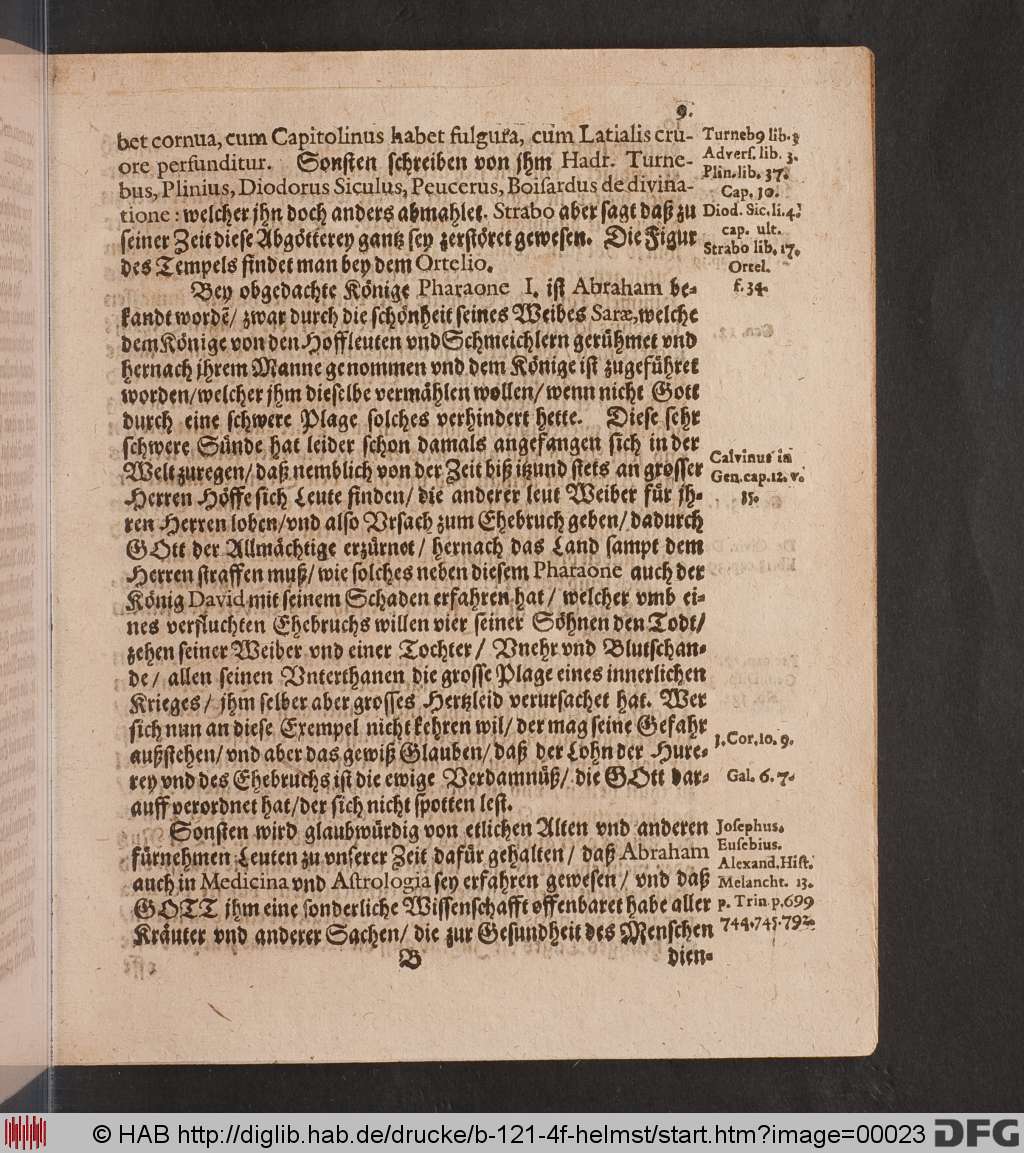 9.
bet cornua, cum Capitolinus habet fulgura, cum Latialis cru-
ore perfunditur. Sonsten schreiben von jhm Hadr. Turne-
bus, Plinius, Diodorus Siculus, Peucerus, Boisardus de divina-
tione: welcher jhn doch anders abmahlet. Strabo aber sagt daß zu
seiner Zeit diese Abgötterey gantz sey zerstöret gewesen. Die Figur
des Tempels findet man bey dem Ortelio.
Bey obgedachte Könige Pharaone I. ist Abraham be-
kandt wordẽ/ zwar durch die schönheit seines Weibes Saræ, welche
dem Könige von den Hoffleuten vnd Schmeichlern gerühmet vnd
hernach jhrem Manne genommen vnd dem Könige ist zugeführet
worden/welcher jhm dieselbe vermählen wollen/ wenn nicht Gott
durch eine schwere Plage solches verhindert hette. Diese sehr
schwere Sünde hat leider schon damals angefangen sich in der
Welt zuregen/ daß nemblich von der Zeit biß itzund stets an grosser
Herren Höffe sich Leute finden/ die anderer leut Weiber für jh-
ren Herren loben/vnd also Vrsach zum Ehebruch geben/ dadurch
GOtt der Allmächtige erzürnet/ hernach das Land sampt dem
Herren straffen muß/ wie solches neben diesem Pharaone auch der
König David mit seinem Schaden erfahren hat/ welcher vmb ei-
nes verfluchten Ehebruchs willen vier seiner Söhnen den Todt/
zehen seiner Weiber vnd einer Tochter/ Vnehr vnd Blutschan-
de/ allen seinen Vnterthanen die grosse Plage eines innerlichen
Krieges/ jhm selber aber grosses Hertzleid verursachet hat. Wer
sich nun an diese Exempel nicht kehren wil/ der mag seine Gefahr
außstehen/ vnd aber das gewiß Glauben/ daß der Lohn der Hure-
rey vnd des Ehebruchs ist die ewige Verdamnüß/ die GOtt dar-
auff verordnet hat/der sich nicht spotten lest.
Sonsten wird glaubwürdig von etlichen Alten vnd anderen
fürnehmen Leuten zu vnserer Zeit dafür gehalten/ daß Abraham
auch in Medicina vnd Astrologia sey erfahren gewesen/ vnd daß
GOTT jhm eine sonderliche Wissenschafft offenbaret habe aller
Kräuter vnd anderer Sachen/ die zur Gesundheit des Menschen
B dien-
Turneb9 lib. 3
Advers. lib. 3.
Plin. lib. 37.
Cap. 10.
Diod. Sic. li. 4.
cap. ult.
Strabo lib. 17.
Ortel.
f. 34.
Calvinus in
Gen. cap. 12. v.
15.
1. Cor. 10. 9.
Gal. 6. 7.
Josephus.
Eusebius.
Alexand. Hist.
Melancht. 13.
p. Trin p. 699
744. 745. 792.
© HAB http://diglib.hab.de/drucke/b-121-4f-helmst/start.htm?image=00023
DFG